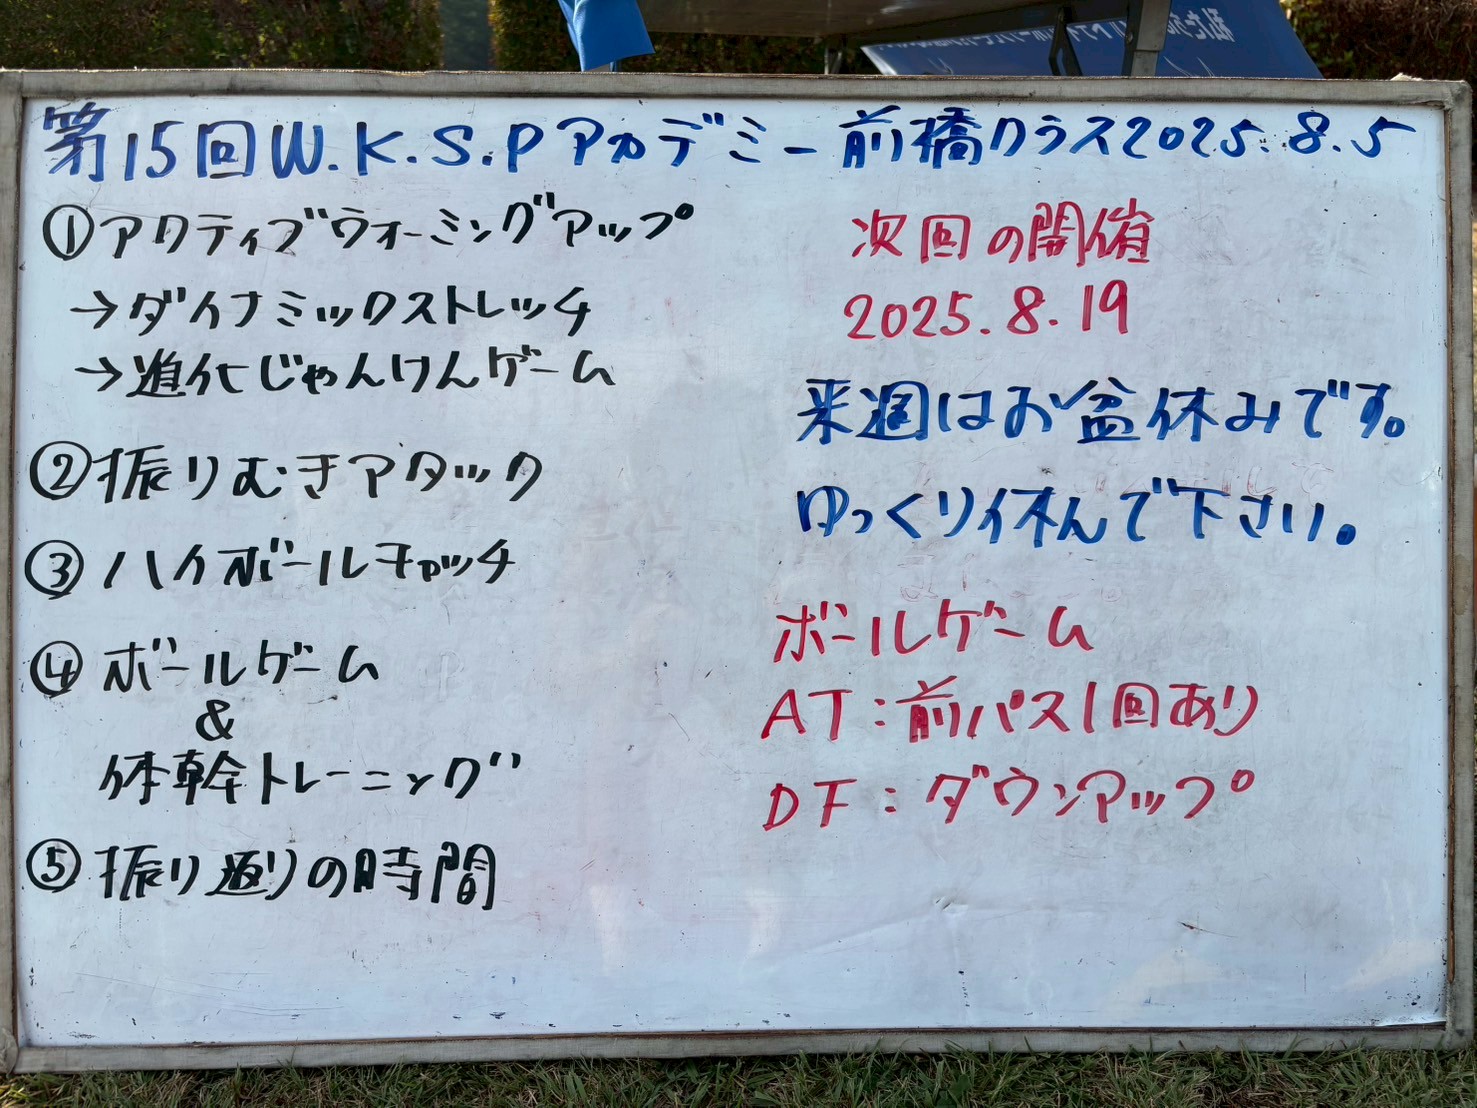 第15回W.K.S.Pアカデミー前橋クラス2025.8.5
①アクティブウォーミングアップ
→ダイナミックストレッチ
→進化じゃんけんゲーム
②振りむきアタック
③ハイボールキャッチ
④ボールゲーム
&
体幹トレーニング
⑤振り返りの時間
次回の開催
2025.8.19
来週はお盆休みです。
ゆっくり休んで下さい。
ボールゲーム
AT:前パス1回あり
DF:ダウンアップ